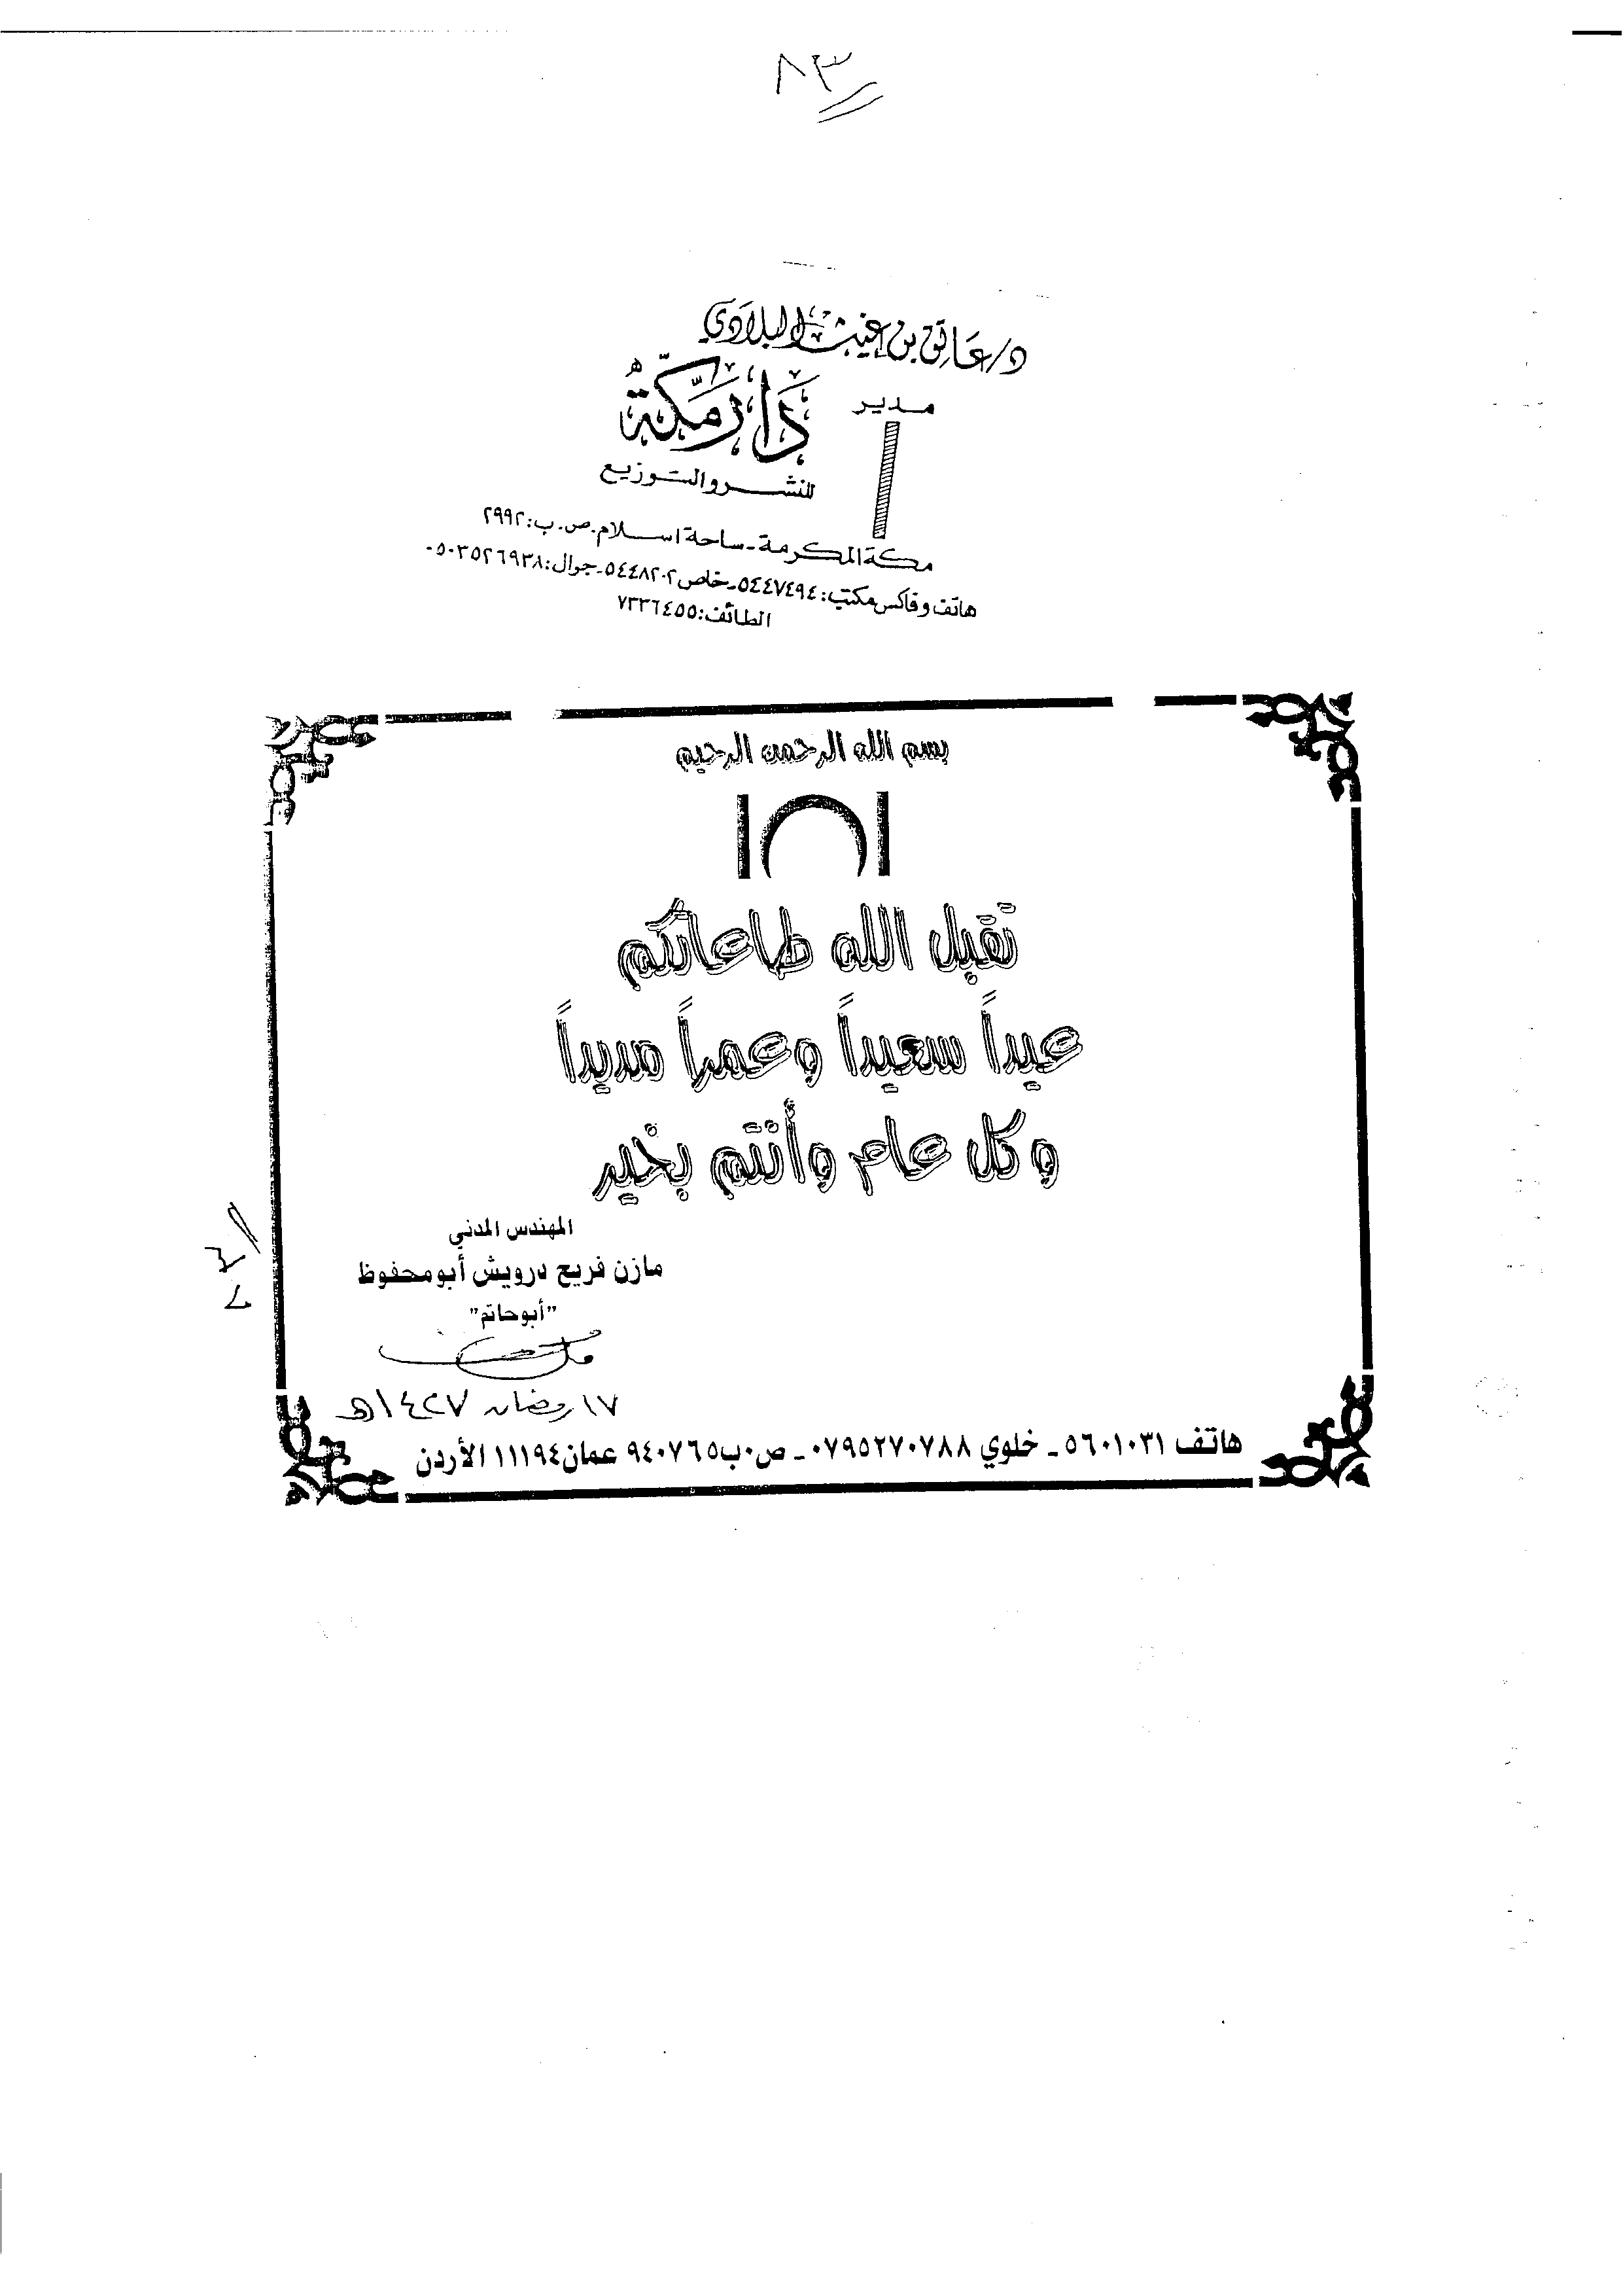 ٨٣
د/عاتق بن غيث البلادي
مدير
دار مكة
للنشر والتوزيع
مكة المكرمة - ساحة اسلام . ص . ب : ٢٩٩٢
هاتف وفاكس مكتب : ٥٤٤٧٤٩٤ - خاص ٥٤٤٨٢٠٢ - جوال : ٠٥٠٣٥٢٦٩٣٨
الطائف : ٧٣٣٦٤٥٥
بسم الله الرحمن الرحيم
تقبل الله طاعاتكم
عيداً سعيداً وعمراً مديداً
وكل عام وأنتم بخير
المهندس المدني
مازن فريح درويش أبو محفوظ
"أبو حاتم"
١٧ رمضان ١٤٢٧هـ
هاتف ٥٦٠١٠٣١ - خلوي ٠٧٩٥٢٧٠٧٨٨ - ص.ب ٩٤٠٧٦٥ عمان ١١١٩٤ الأردن